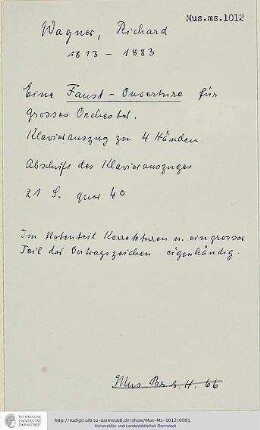 Mus.ms.1012
Wagner, Richard
1813 - 1883
Eine Faust - Ouverture für
grosses Orchester.
Klavierauszug zu 4 Händen.
Abschrift des Klavierauszuges
21 S. quer 4°
Im Notenteil Korrekturen u. ein grosser
Teil der Vortragszeichen eigenhändig.
Mus
66
http://tudigit.ulb.tu-darmstadt.de/show/Mus-Ms-1012/0001
Universitäts- und Landesbibliothek Darmstadt
TECHNISCHE
UNIVERSITÄT
DARMSTADT